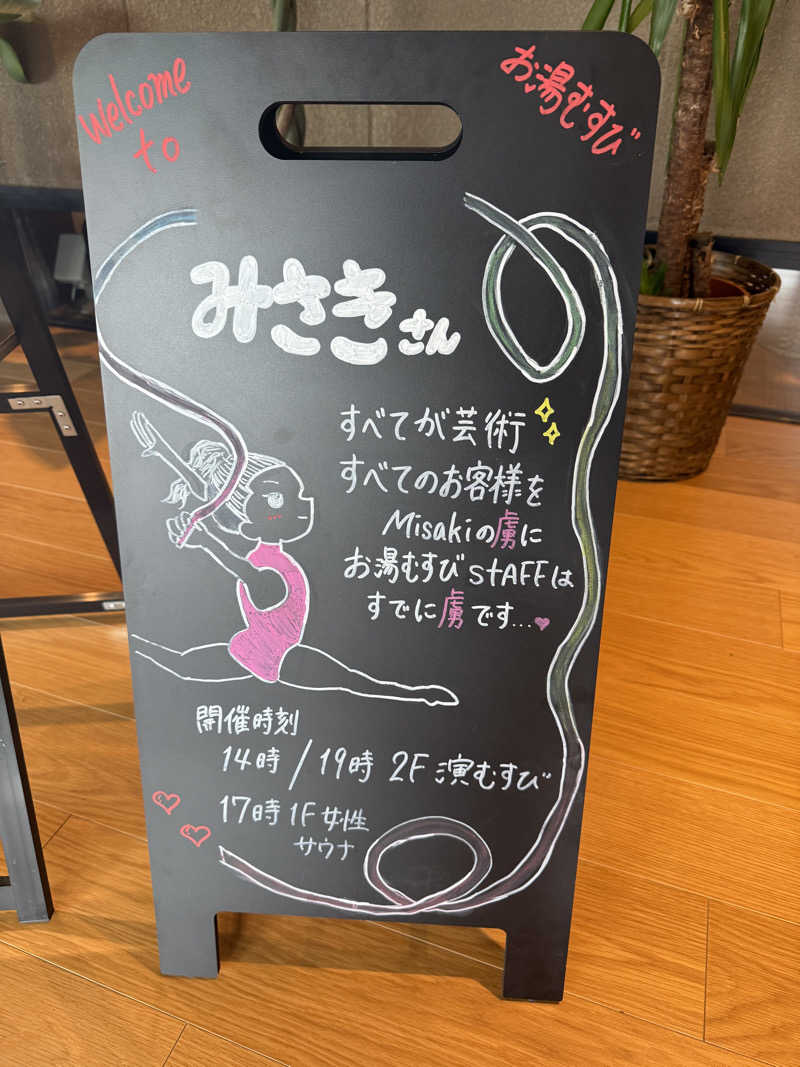 Welcome
to
お湯むすび
みさきさん
すべてが芸術
すべてのお客様を
Misakiの虜に
お湯むすびSTAFFは
すでに虜です...
開催時刻
14時/19時 2F 演むすび
17時 1F 女性
サウナ